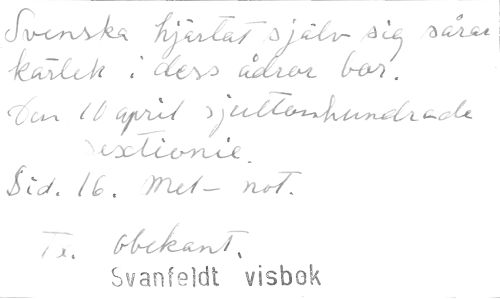 Svenska hjärtat själv sig sårar
kärlek i dess ådror bor.
Den 10 april sjuttonhundrade
sextionie.
Sid. 16. Mel- not.
Tx. Obekant.
Svanfeldt visbok